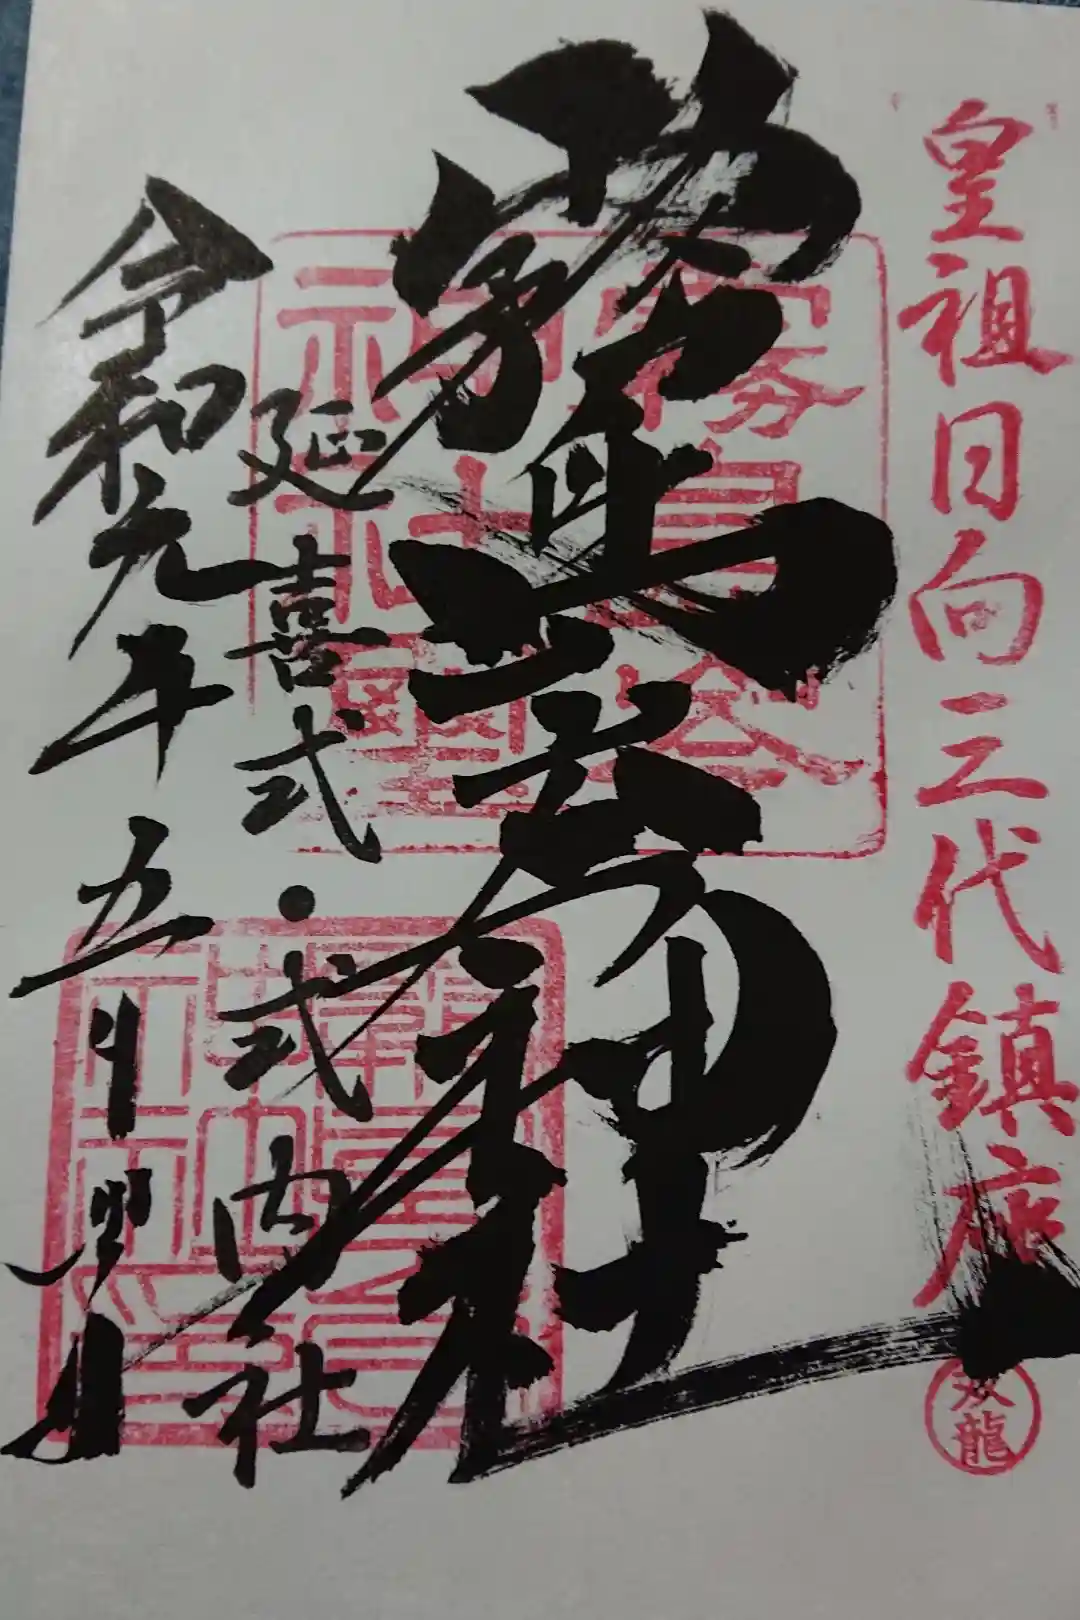 皇祖日向三代鎮座
双龍
霧島岑神社
延喜式・式内社
令和元年五月